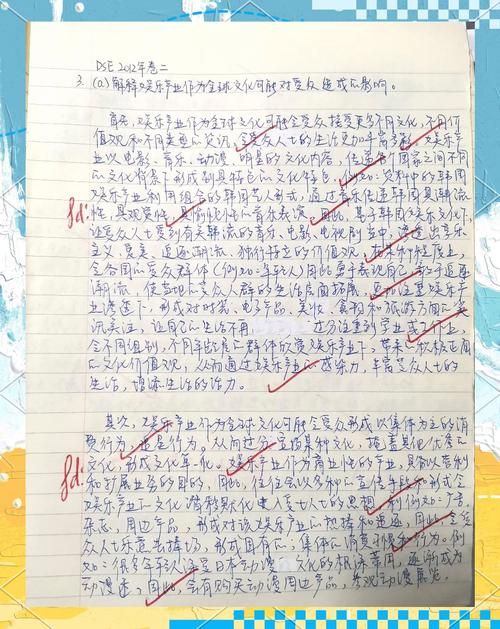 DSE 2012年卷二
3. (a) 解释娱乐产业作为全球文化可能对受众造成的影响。
首先,娱乐产业作为全球文化可能令受众接受更多不同文化,不同价
值观和不同类型的资讯,令受众人士的生活更加丰富多彩。娱乐产
业以电影、音乐、动漫、明星的文化内容,传递各个国家之间不同
的文化背景下形成别具特色的文化特色,例如:资料中的韩国
娱乐产业利用组合的韩国艺人形式,通过音乐传递韩国具潮流
性,具观赏性,具愉悦性的音乐表演。因此,基于韩国娱乐文化下,
让受众人士受到有关韩流的音乐、电影、电视剧当中,
主义、爱美、追逐潮流、独行特立的价值观。在某种程度上,
令各国的受众群体(例如:年轻人)因此勇于表现自己,
潮流,使当地的受众人群的生活层面拓展,更加注重娱乐产
业渗透下,形成对时装、电子产品、美妆、食物和旅游方面的资
讯关注,让自己的生活不再 过分注重到学业或工作上,
令不同组别,不同年龄层的群体欣赏娱乐产业下,带来的积极正面
的文化价值观,从而通过娱乐产业的感乐力,丰富受众人士的
生活,增添生活的活力。
fd:
其次,娱乐产业作为全球文化可能令受众形成以集体为主的消
费行为,追星行为。从而过分 某种文化,掩盖其他优秀的
文化,形成文化单一化。娱乐产业作为商业性的产业,具备以营利
和扩展业务的目的,因此,往往会以多种的宣传手段和形式令
娱乐产业的文化潜移默化进入受众人士的思想,例如:广
周边产品,形成对该娱乐产业的热捧和追逐,因此,令受
众人士乐意去捧场,形成固有的,集体的消费 和行为。例
如:很多年轻人深受日本动漫文化的根深蒂固,逐渐成为
动漫迷,因此,会有购买动漫周边产品,参观动漫展览
fd: